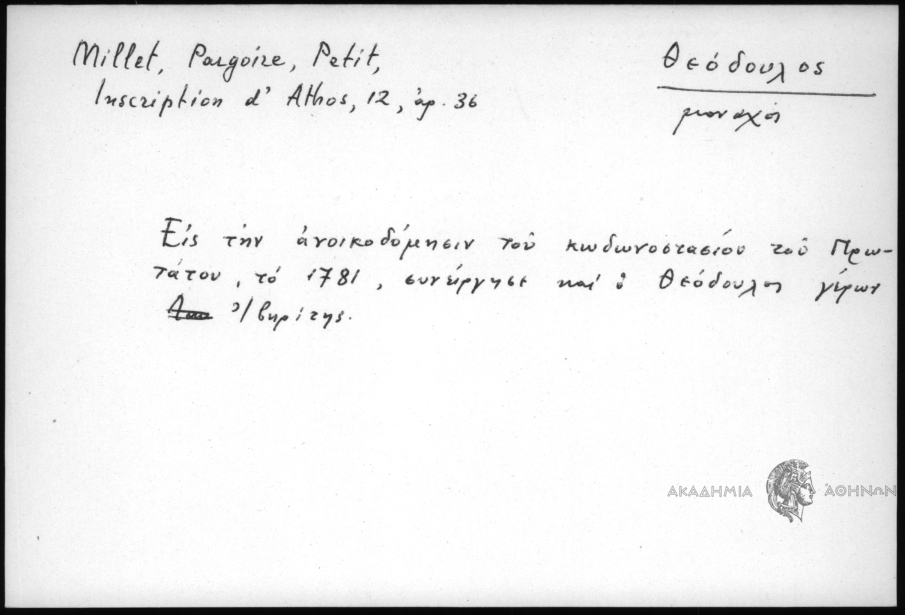 Millet, Pargoire, Petit,
Inscription d' Athos, 12, ἀρ. 36
Θεόδουλος
μοναχός
Εἰς τήν ἀνοικοδόμησιν τοῦ κωδωνοστασίου τοῦ Πρω-
τάτου, τό 1781, συνήργησε καί ὁ Θεόδουλος γέρων
Ἰβηρίτης.
ΑΚΑΔΗΜΙΑ ΑΘΗΝΩΝ